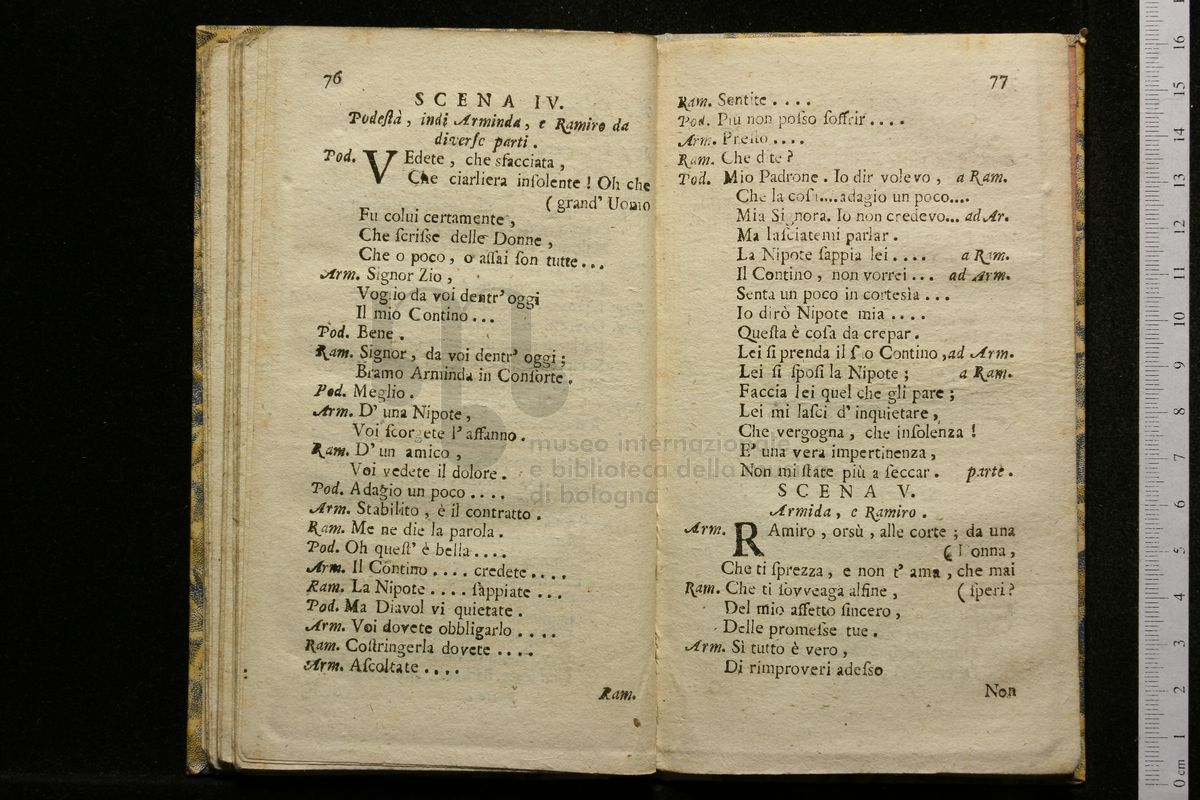 76
SCENA IV.
Podestà, indi Arminda, e Ramiro da
diverse parti.
Pod. VEdete, che sfacciata,
Che ciarliera insolente! Oh che
( grand' Uomo
Fu colui certamente,
Che scrisse delle Donne,
Che o poco, o assai son tutte...
Arm. Signor Zio,
Voglio da voi dentr' oggi
Il mio Contino...
Pod. Bene.
Ram. Signor, da voi dentr' oggi;
Bramo Arminda in Consorte.
Pod. Meglio.
Arm. D' una Nipote,
Voi scorgete l' affanno.
Ram. D' un amico,
Voi vedete il dolore.
Pod. Adagio un poco....
Arm. Stabilito, è il contratto.
Ram. Me ne die la parola.
Pod. Oh quest' è bella....
Arm. Il Contino.... credete....
Ram. La Nipote.... sappiate...
Pod. Ma Diavol vi quietate.
Arm. Voi dovete obbligarlo....
Ram. Costringerla dovete....
Arm. Ascoltate....
Ram.
77
Ram. Sentite....
Pod. Più non posso soffrir....
Arm. Presto....
Ram. Che dite?
Pod. Mio Padrone. Io dir volevo, a Ram.
Che la cosa....adagio un poco....
Mia Signora. Io non credevo... ad Ar.
Ma lasciatemi parlar.
La Nipote sappia lei.... a Ram.
Il Contino, non vorrei... ad Arm.
Senta un poco in cortesìa...
Io dirò Nipote mia....
Questa è cosa da crepar.
Lei si prenda il suo Contino, ad Arm.
Lei si sposi la Nipote; a Ram.
Faccia lei quel che gli pare;
Lei mi lasci d' inquietare,
Che vergogna, che insolenza!
E' una vera impertinenza,
Non mi state più a seccar. parte.
SCENA V.
Armida, e Ramiro.
Arm. RAmiro, orsù, alle corte; da una
( Donna,
Che ti sprezza, e non t' ama, che mai
Ram. Che ti sovveaga alfine, ( speri?
Del mio affetto sincero,
Delle promesse tue.
Arm. Sì tutto è vero,
Di rimproveri adesso
Non
museo internazionale
e biblioteca della
di bologna
0 cm 1 2 3 4 5 6 7 8 9 10 11 12 13 14 15 16